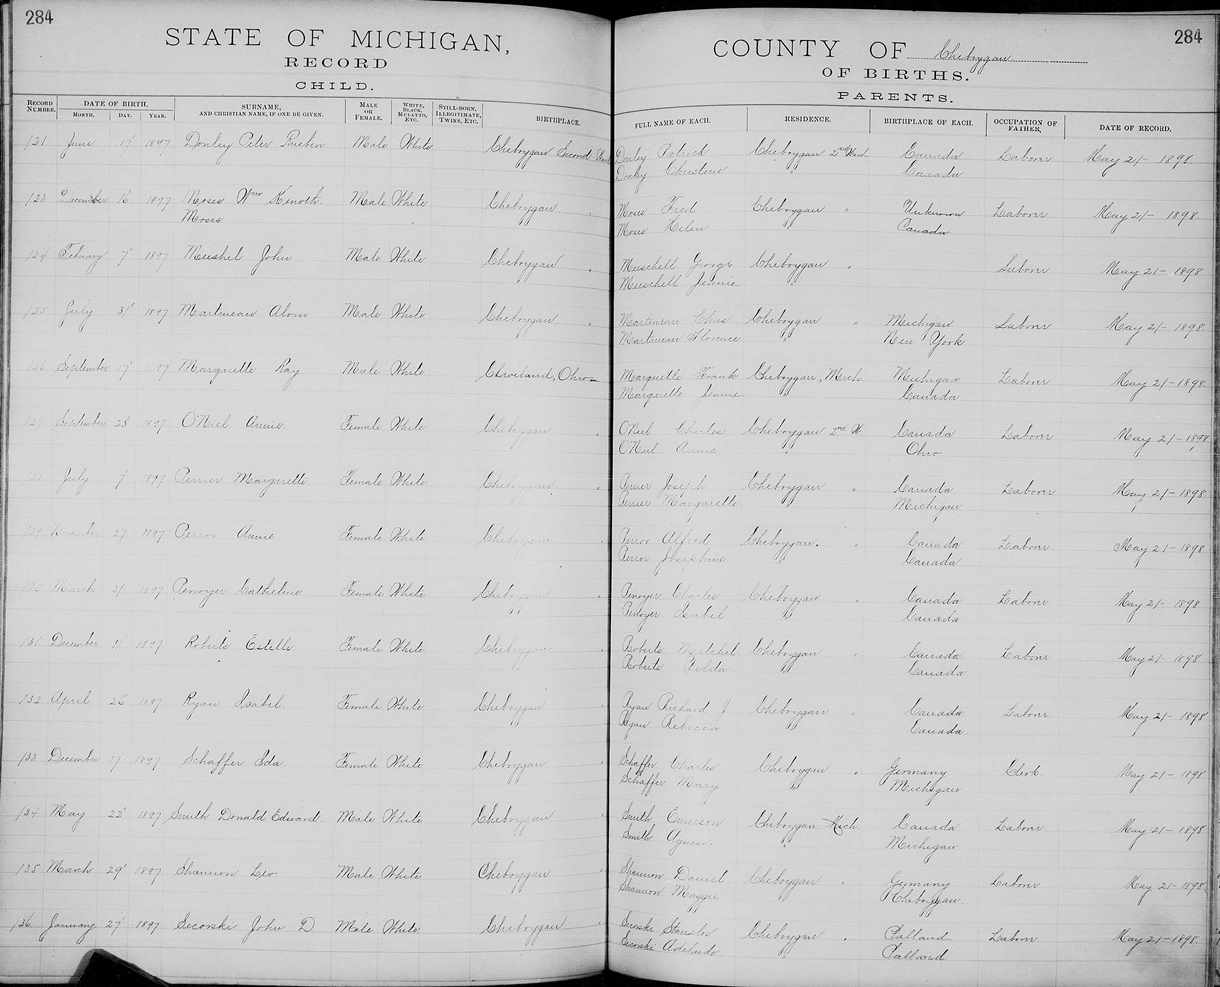 284
STATE OF MICHIGAN,
RECORD
CHILD.
RECORD NUMBER. DATE OF BIRTH. MONTH. DAY. YEAR. SURNAME, AND CHRISTIAN NAME, IF ONE BE GIVEN. MALE OR FEMALE. WHITE, BLACK, MULATTO, ETC. STILL-BORN, ILLEGITIMATE, TWINS, ETC. BIRTHPLACE.
121 June 1897 Donley Peter Reuben Male White Cheboygan Second
123 December 1897 Moses Wm Kenoth Male White Cheboygan
Moses
124 February 7 1897 Meushel John Male White Cheboygan
125 July 31 1897 Martineau Male White Cheboygan
September 1897 Marquette Ray Male White Cleveland, Ohio
September 28 1897 O'Neil Annie Female White Cheboygan
July 1897 Margarette Female White Cheboygan
27 1897 Perror Annie Female White Cheboygan
March 1897 Penoyer Catherine Female White Cheboygan
131 December 1897 Roberts Estella Female White Cheboygan
132 April 1897 Ryan Isabel Female White Cheboygan
133 December 1897 Schaffer Ida Female White Cheboygan
134 May 22 1897 Smith Donald Edward Male White Cheboygan
135 March 29 1897 Shannon Leo Male White Cheboygan
136 January 27 1897 Secorski John D Male White Cheboygan
284
COUNTY OF Cheboygan
OF BIRTHS.
PARENTS.
FULL NAME OF EACH. RESIDENCE. BIRTHPLACE OF EACH. OCCUPATION OF FATHER. DATE OF RECORD.
Donley Patrick Cheboygan 2nd Ward Canada Laborer May 21- 1898
Donley Christine " Canada
Moses Fred Cheboygan " Unknown Laborer May 21- 1898
Moses Helen Canada
Meuschell George Cheboygan " Laborer May 21- 1898
Meuschell Jennie
Martineau Chas Cheboygan " Michigan Laborer May 21- 1898
Martineau Florence " New York
Marquette Frank Cheboygan, Mich Michigan Laborer May 21- 1898
Marquette " Canada
O'Neil Charles Cheboygan 2nd W Canada Laborer May 21- 1898
O'Neil Annie " Ohio
Joseph Cheboygan " Canada Laborer May 21- 1898
Margarette Michigan
Perror Alfred Cheboygan. " Canada Laborer May 21- 1898
Perror Josephine Canada
Penoyer Charles Cheboygan " Canada Laborer May 21- 1898
Penoyer Isabel Canada
Roberts Mitchel Cheboygan " Canada Laborer May 21- 1898
Roberts Canada
Ryan Richard J Cheboygan " Canada Laborer May 21- 1898
Ryan Rebecca Canada
Schaffer Charles Cheboygan " Germany Clerk May 21- 1898
Schaffer Mary Michigan
Smith Emerson Cheboygan Mich Canada Laborer May 21- 1898
Smith Agnes Michigan
Shannon Daniel Cheboygan " Germany Laborer May 21- 1898
Shannon Maggie Cheboygan
Secorski Cheboygan " Polland Laborer May 21- 1898
Secorski Adelaide Polland